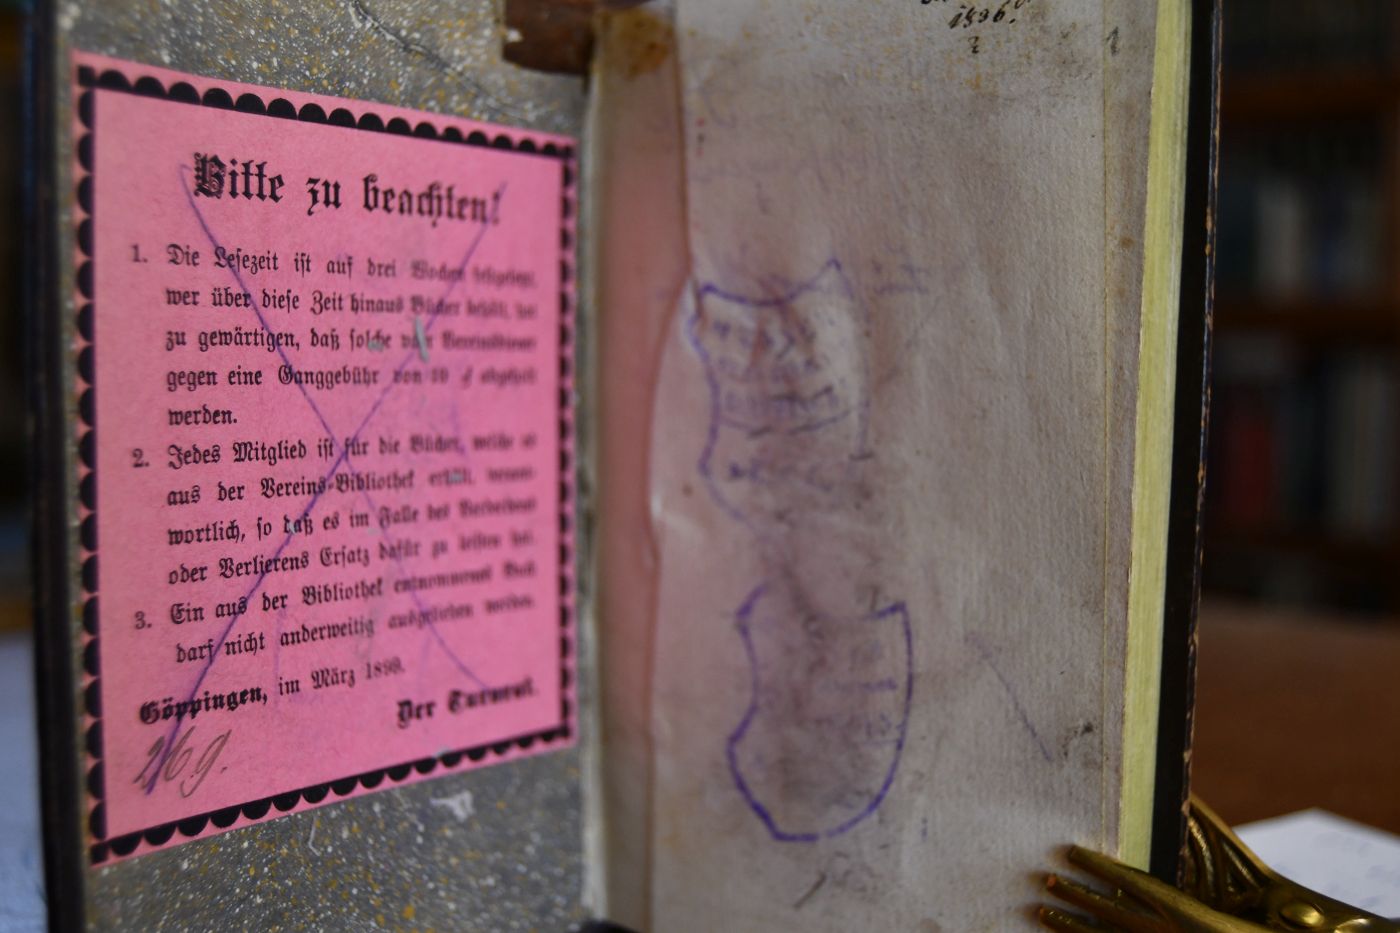 Bitte zu beachten!
1. Die Lesezeit ist auf drei Wochen festgesetzt,
wer über diese Zeit hinaus Bücher behält, hat
zu gewärtigen, daß solche vom Vereinsdiener
gegen eine Ganggebühr von 10 ₰ abgeholt
werden.
2. Jedes Mitglied ist für die Bücher, welche es
aus der Vereins-Bibliothek erhält, verant-
wortlich, so daß es im Falle des Verderbens
oder Verlierens Ersatz dafür zu leisten hat.
3. Ein aus der Bibliothek entnommenes Buch
darf nicht anderweitig ausgeliehen werden.
Göppingen, im März 1899.
Der Turnrat.
26 g.
1896.